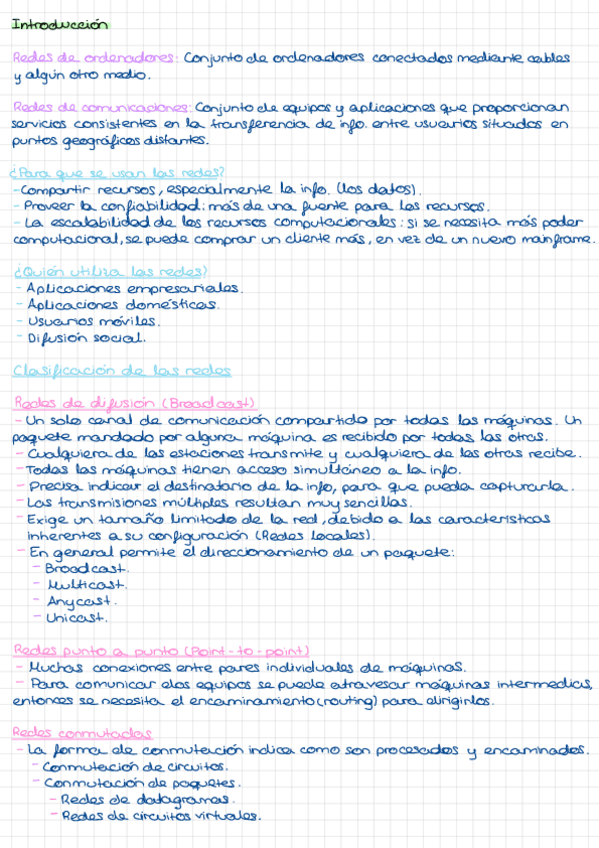 Introducción
Redes de ordenadores: Conjunto de ordenadores conectados mediante cables
y algún otro medio.
Redes de comunicaciones: Conjunto de equipos y aplicaciones que proporcionan
servicios consistentes en la transferencia de info. entre usuarios situados en
puntos geográficos distantes.
¿Para que se usan las redes?
- Compartir recursos, especialmente la info. (los datos).
- Proveer la confiabilidad: más de una fuente para los recursos.
- La escalabilidad de los recursos computacionales: si se necesita más poder
computacional, se puede comprar un cliente más, en vez de un nuevo mainframe.
¿Quién utiliza las redes?
- Aplicaciones empresariales.
- Aplicaciones domésticas.
- Usuarios móviles.
- Difusión social.
Clasificación de las redes
Redes de difusión (Broadcast)
- Un solo canal de comunicación compartido por todas las máquinas. Un
paquete mandado por alguna máquina es recibido por todas las otras.
- Cualquiera de las estaciones transmite y cualquiera de las otras recibe.
- Todas las máquinas tienen acceso simultáneo a la info.
- Precisa indicar el destinatario de la info, para que pueda capturarla.
- Las transmisiones múltiples resultan muy sencillas.
- Exige un tamaño limitado de la red, debido a las características
inherentes a su configuración (Redes locales).
- En general permite el direccionamiento de un paquete:
- Broadcast.
- Multicast.
- Anycast.
- Unicast.
Redes punto a punto (Point-to-point)
- Muchas conexiones entre pares individuales de máquinas.
- Para comunicar dos equipos se puede atravesar máquinas intermedias,
entonces se necesita el encaminamiento (routing) para dirigirlos.
Redes conmutadas
- La forma de conmutación indica como son procesados y encaminados.
- Conmutación de circuitos.
- Conmutación de paquetes.
- Redes de datagramas.
- Redes de circuitos virtuales.